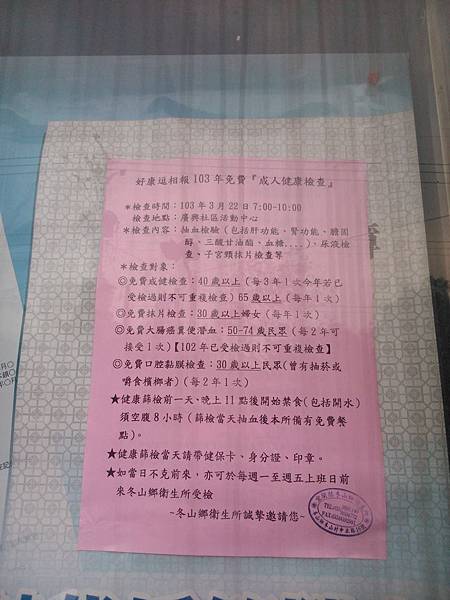 好康逗相報103年免費『成人健康檢查』
＊檢查時間：103年3月22日7:00-10:00
檢查地點：廣興社區活動中心
＊檢查內容：抽血檢驗(包括肝功能、腎功能、膽固
醇、三酸甘油酯、血糖....)、尿液檢
查、子宮頸抹片檢查等
＊檢查對象：
◎免費成健檢查：40歲以上(每3年1次今年若已
受檢過則不可重複檢查) 65歲以上(每年1次)
◎免費抹片檢查：30歲以上婦女(每年1次)
◎免費大腸癌糞便潛血：50-74歲民眾(每2年可
接受1次)【102年已受檢過則不可重複檢查】
◎免費口腔黏膜檢查：30歲以上民眾(曾有抽菸或
嚼食檳榔者)(每2年1次)
★健康篩檢前一天、晚上11點後開始禁食(包括開水)
須空腹8小時(篩檢當天抽血後本所備有免費餐
點)。
★健康篩檢當天請帶健保卡、身分證、印章。
★如當日不克前來，亦可於每週一至週五上班日前
來冬山鄉衛生所受檢
~冬山鄉衛生所誠摯邀請您~